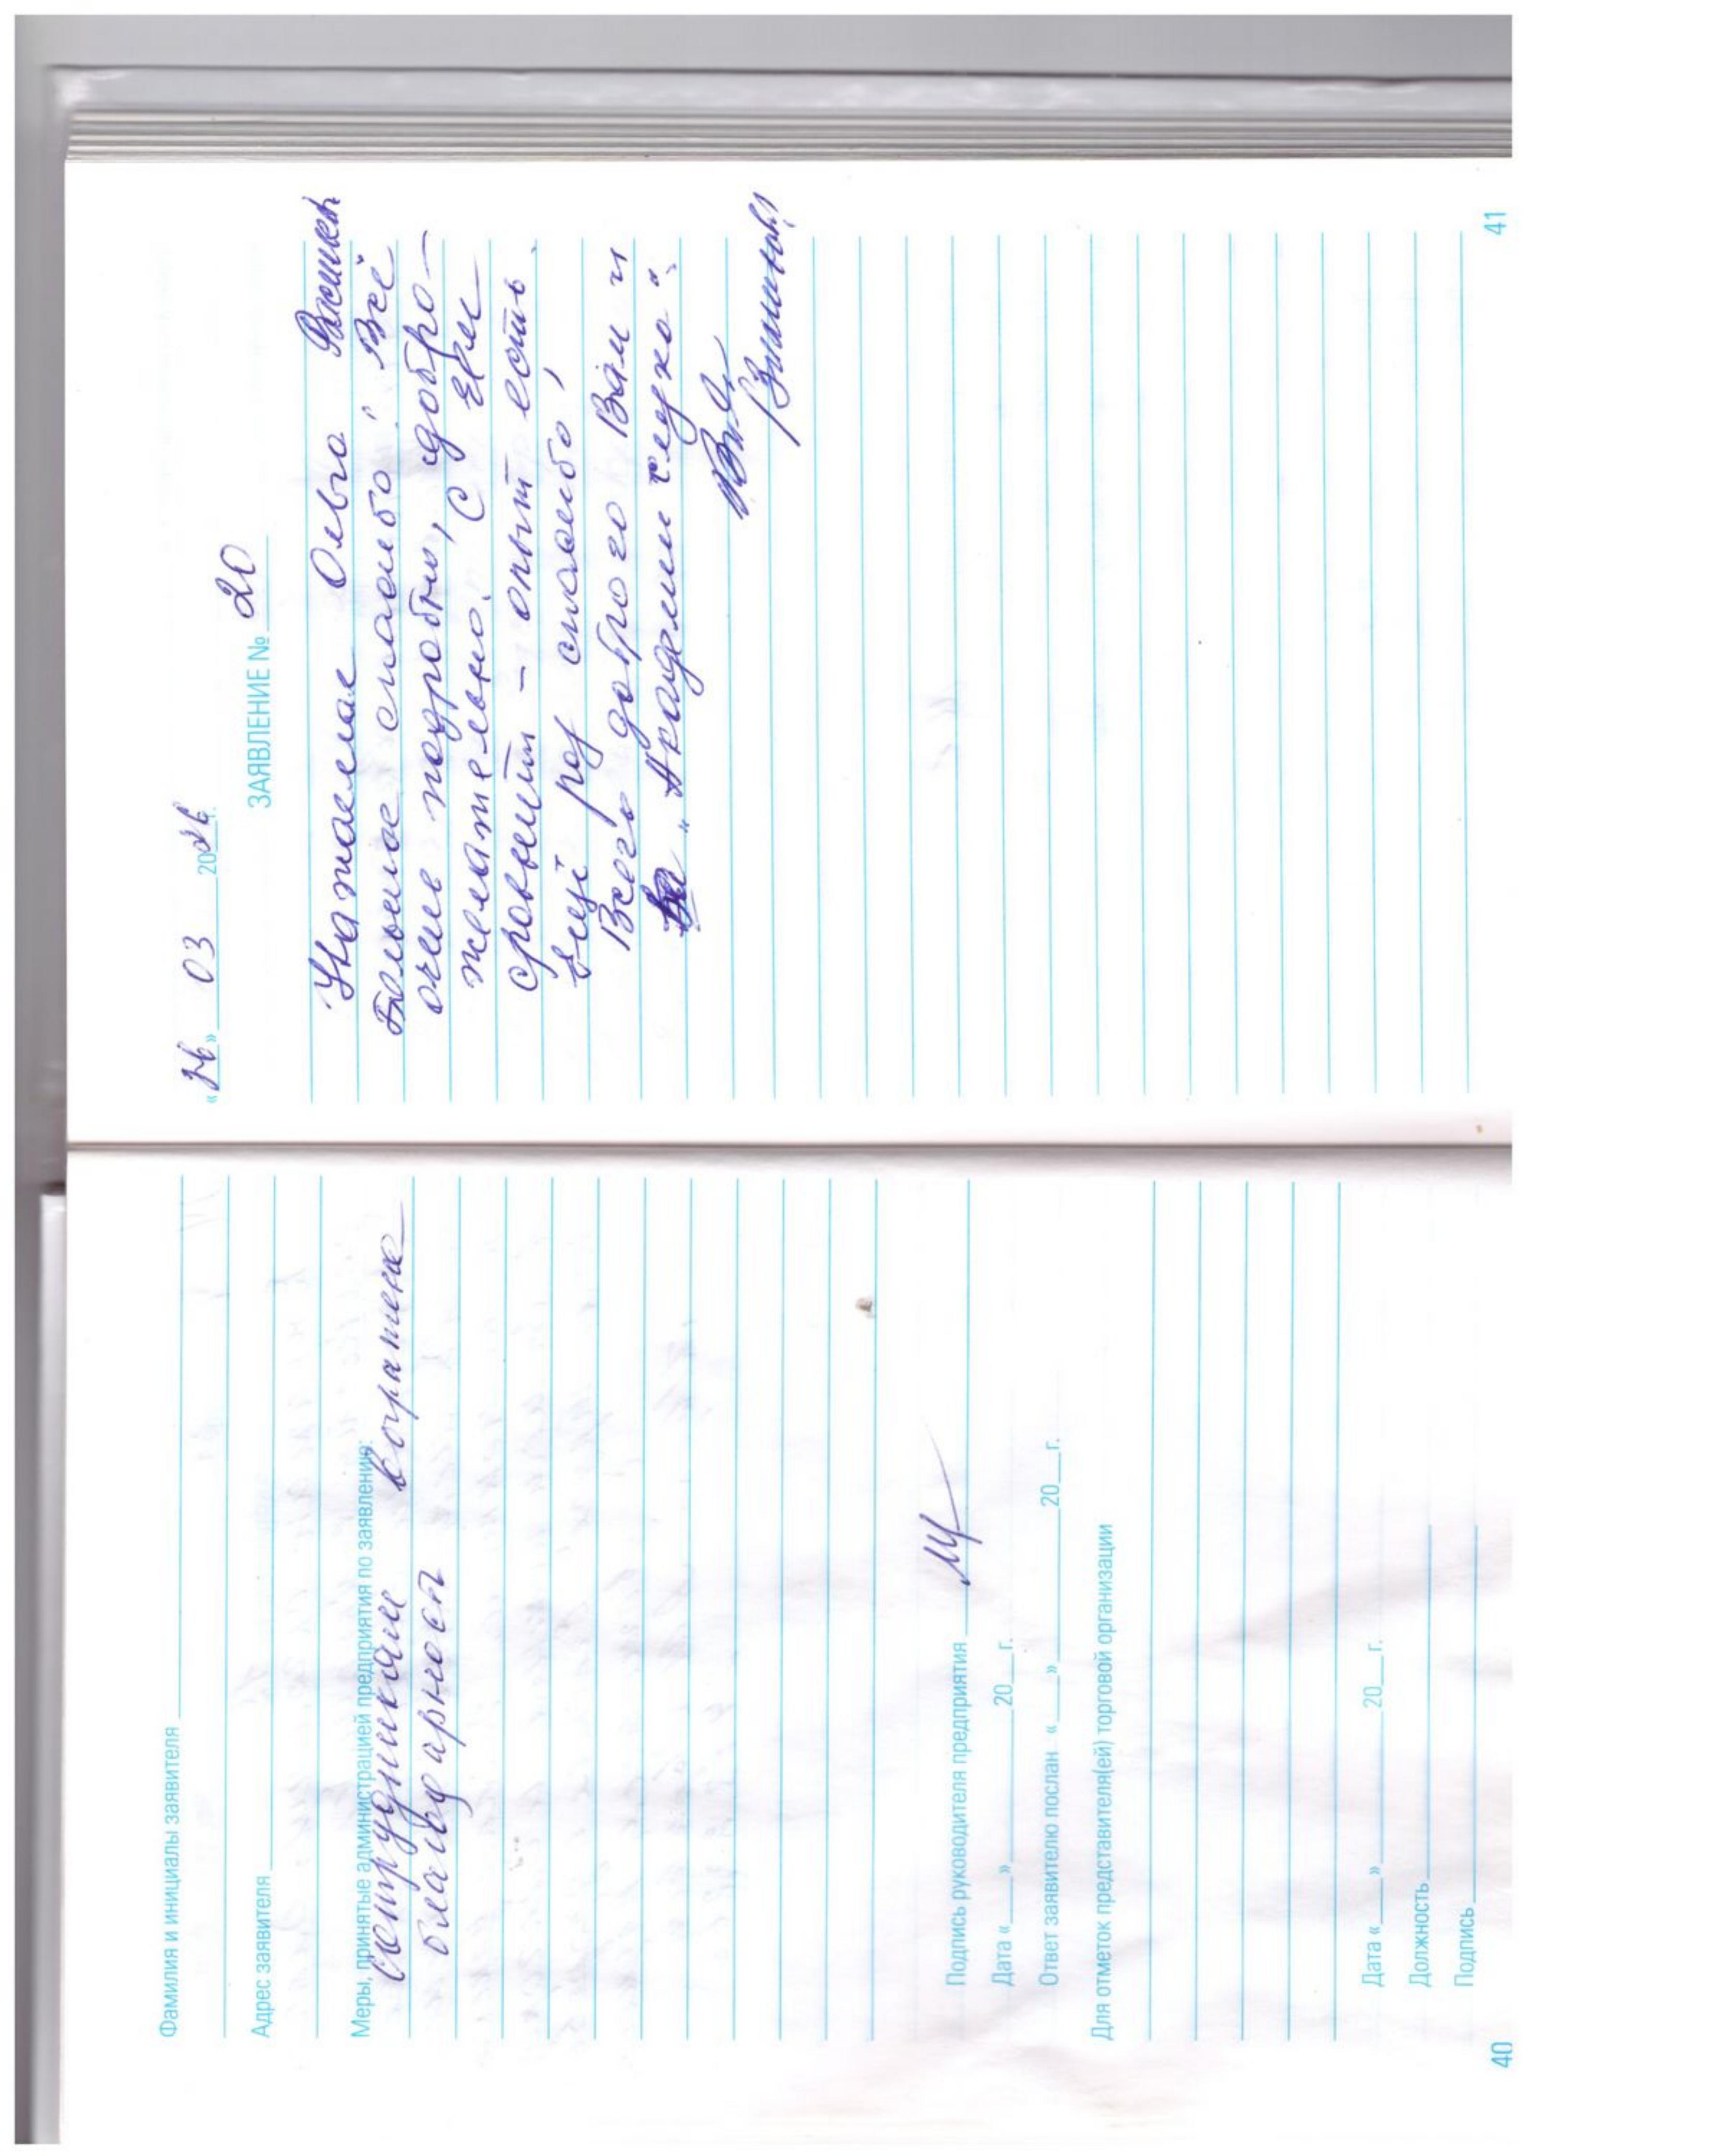 Фамилия и инициалы заявителя
Адрес заявителя
Меры, принятые администрацией предприятия по заявлению:
Сотрудникам выражена
благодарность
Подпись руководителя предприятия
Дата «___» ______ 20__г.
Ответ заявителю послан «___» ______ 20__г.
Для отметок представителя(ей) торговой организации
Дата «___» ______ 20__г.
Должность
Подпись
40
« » 03 20
ЗАЯВЛЕНИЕ № 20
Уважаемая Ольга
Большое спасибо! Всё
очень подробно, добро-
желательно. С кем
сравнить - опыт есть.
Ещё раз спасибо,
Всего доброго Вам и
"Академии слуха".
41